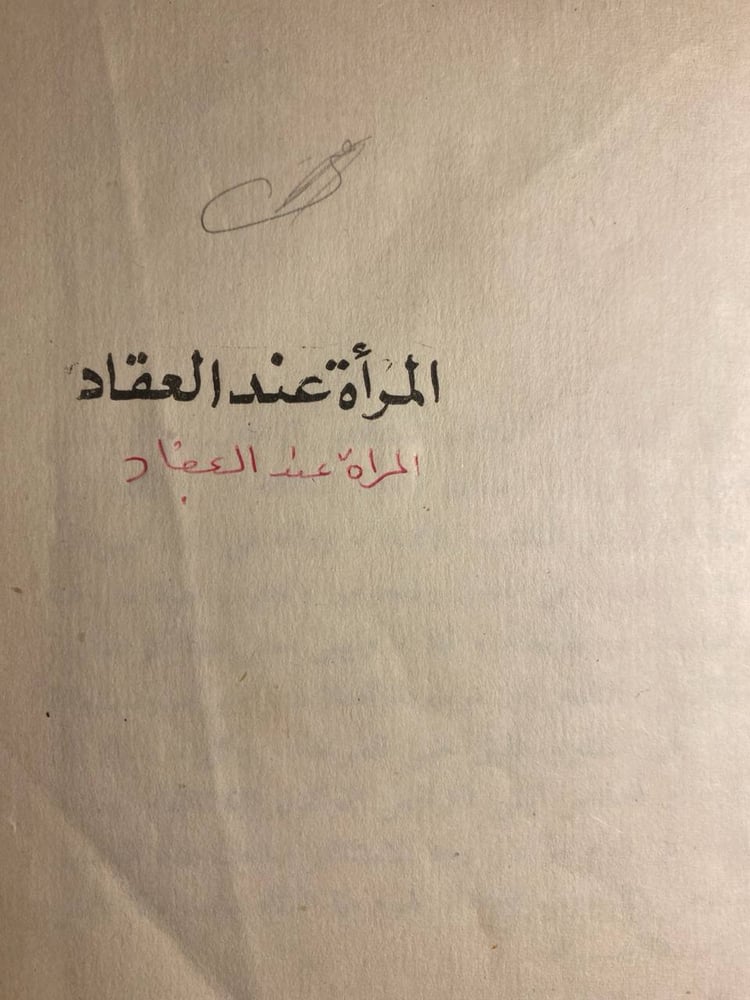 المرأة عند العقاد
المراة عند العقاد